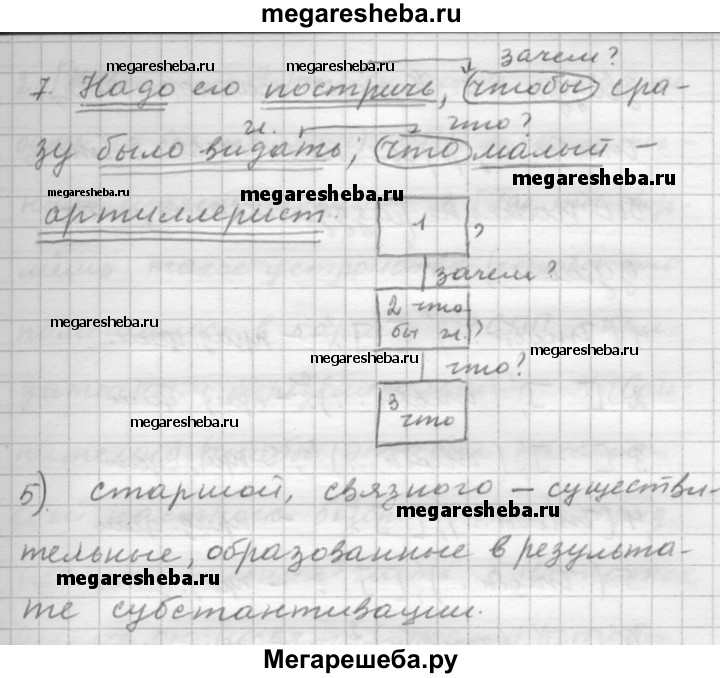 megaresheba.ru
зачем?
megaresheba.ru megaresheba.ru
7. Надо его постричь, чтобы сра-
г. что?
зу было видать, что малый –
megaresheba.ru
megaresheba.ru megaresheba.ru
артиллерист.
1,
зачем?
2 что
бы г.,
megaresheba.ru
megaresheba.ru megaresheba.ru
что?
3
что
megaresheba.ru
5). старшой, связного – существи-
megaresheba.ru
тельные, образованные в результа-
megaresheba.ru
те субстантивации.
Мегарешеба.ру